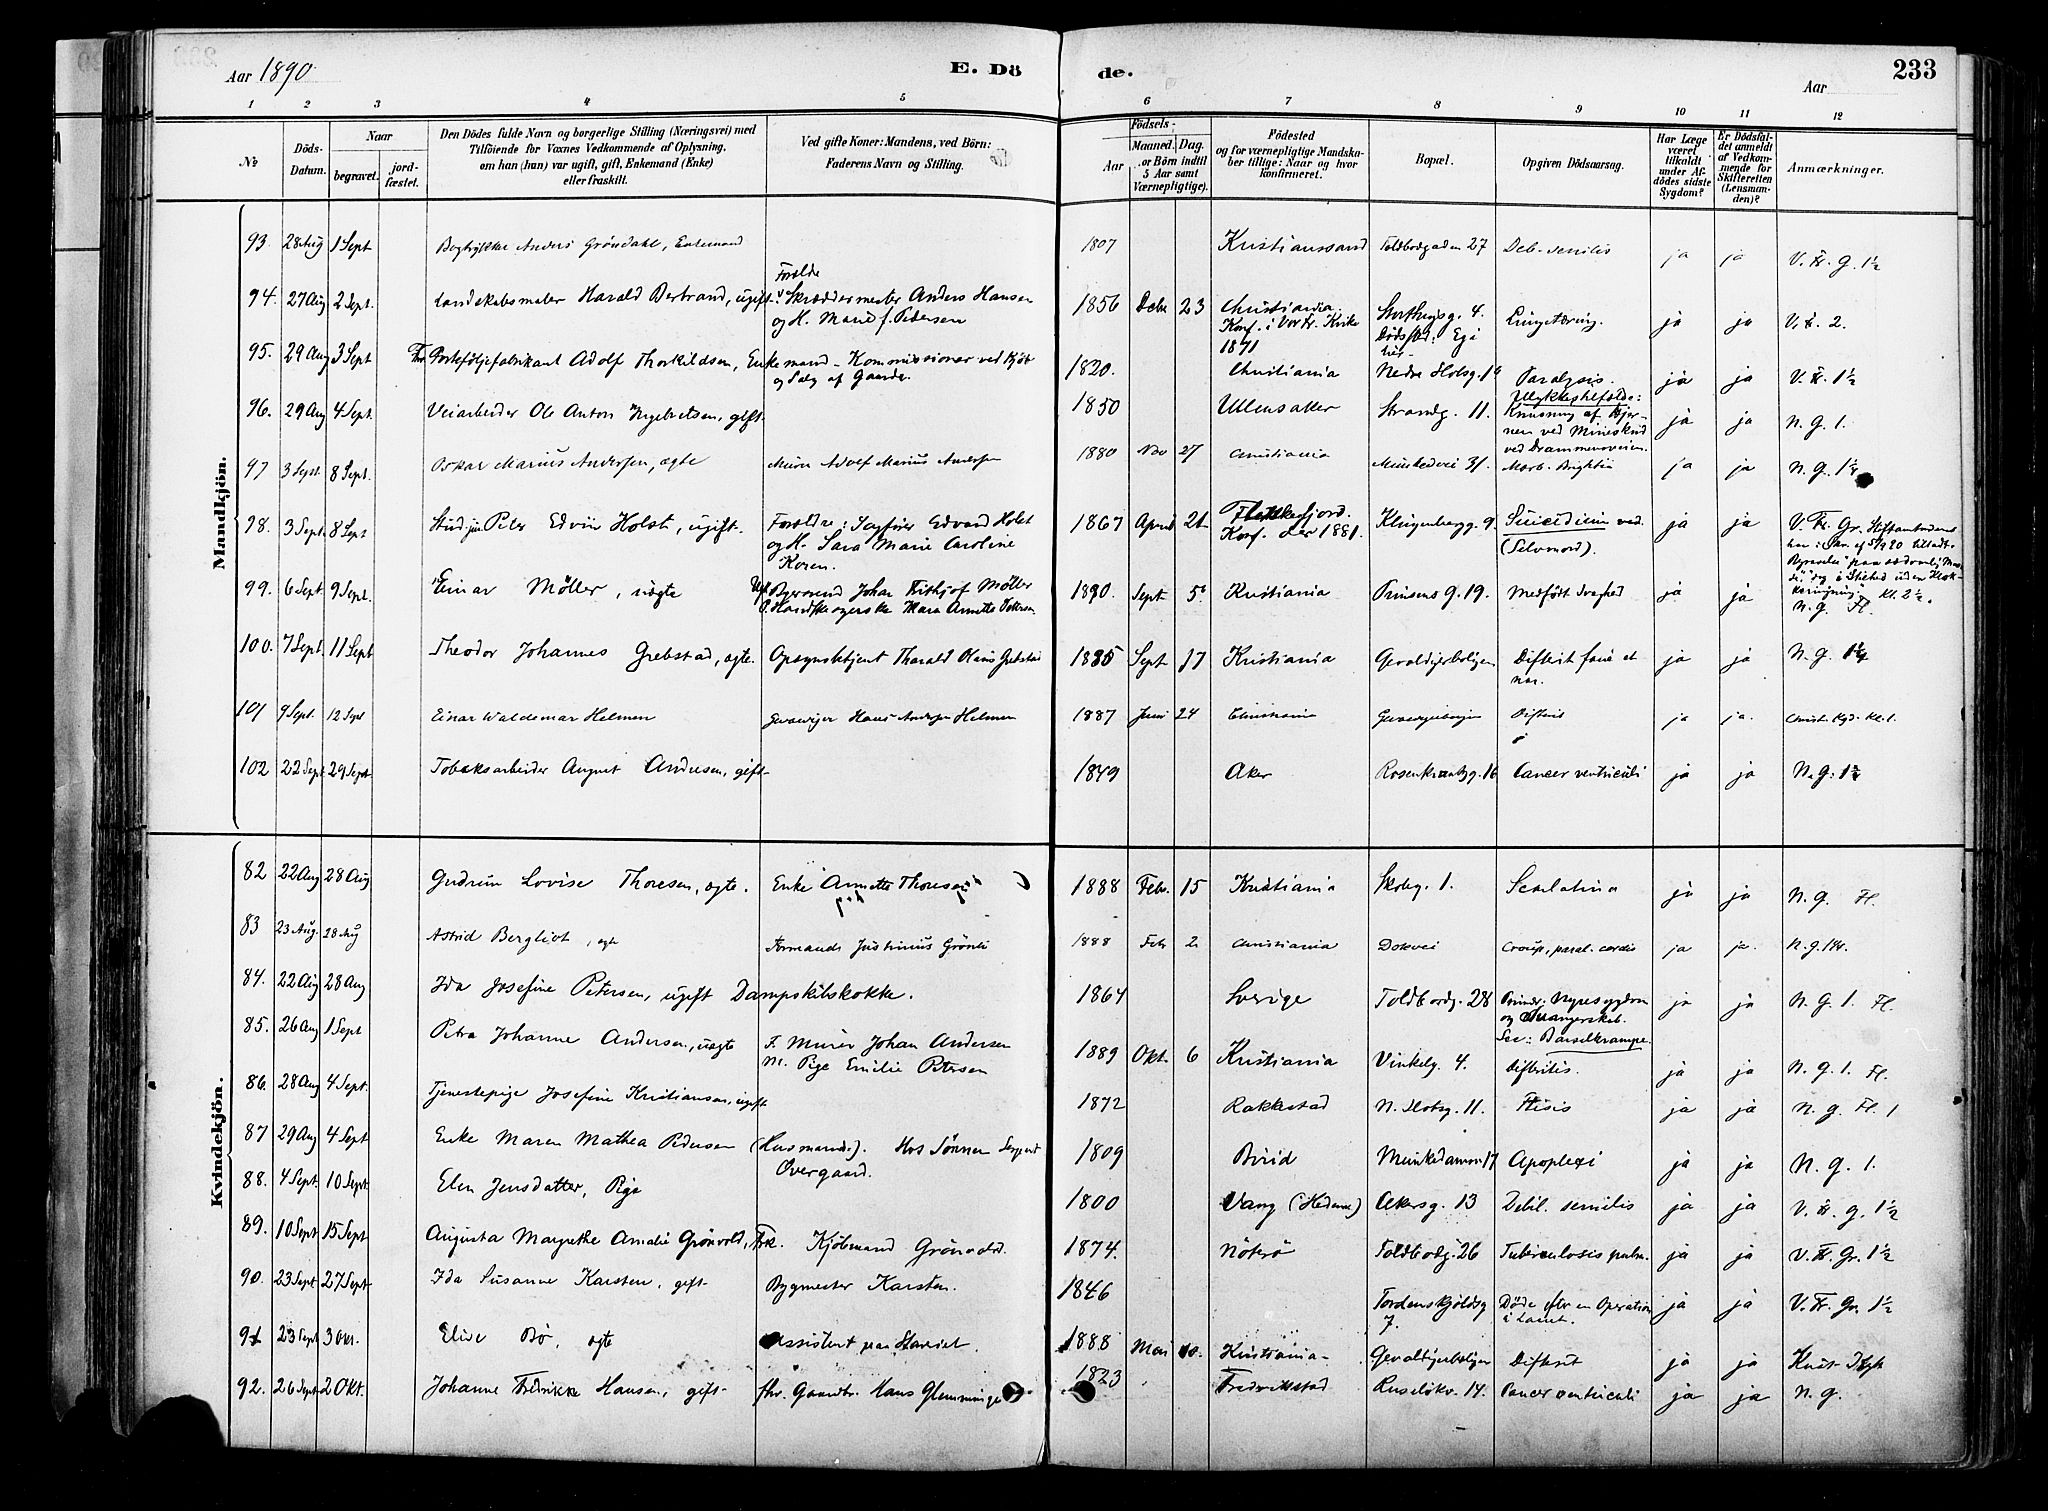 Aar 1890
E. Dö
de.
Aar
233
1 2 3 4 5 6 7 8 9 10 11 12
No
Döds-Datum.
Naar
begravet.
jord-fæstet.
Den Dödes fulde Navn og borgerlige Stilling (Næringsvei) med
Tilföiende for Voxnes Vedkommende af Oplysning,
om han (hun) var ugift, gift, Enkemand (Enke)
eller fraskilt.
Ved gifte Koner: Mandens, ved Börn:
Faderens Navn og Stilling.
Födsels-
Aar
Maaned. Dag.
for Börn indtil
5 Aar samt
Værnepligtige).
Födested
og for værnepligtige Mandska-
ber tillige: Naar og hvor
konfirmeret.
Bopæl.
Opgiven Dödsaarsag.
Har Læge
været
tilkaldt
under Af-
dödes sidste
Sygdom?
Er Dödsfal-
det anmeldt
af Vedkom-
mende for
Skifteretten
(Lensman-
den)?
Anmærkninger.
Mandkjön.
93. 28 Aug 1 Sept Anders Gröndahl, Enkemand 1807 Kristianssand Toldbodgaden 27 Deb. senilis ja ja V. Fr. G. 1½
Forældre
94. 27 Aug 2 Sept. Landskabsmaler Harald Bertrand, ugift. Skræddermester Anders Hansen 1856 Debr 23 Christiania Storthingsg. 4. Lungetæring. ja ja V. Fr. 2.
og H. Marie f. Pedersen Konf. i Vor Fr. Kirke
1871
95. 29 Aug 3 Sept Portefôljefabrikant Adolf Thorkildsen, Enkemand - Kommissionær ved Kjöb 1820. Christiania Nedre Slotsg. Paralysis. ja ja V. Fr. 1½
og Salg af Gaarde.
96. 29 Aug 4 Sept. Veiarbeider Ole Anton Ingebretsen, gift 1850 Ullensaker Strandg. 11. Ulykkestilfælde: ja ja N. G. 1.
Knusning af Hjer-
nen ved Mineskud
ved Drammensveien.
97 3 Sept. 8 Sept. Oskar Marius Andersen, ægte Murer Adolf Marius Andersen 1880 Nov 27 Christiania Munkedvei 31. Morb. Brightii ja ja N. G. 1½
98. 3 Sept. 8 Sept Stud. jur. Peter Edvin Holst, ugift. Forældre: Edvard Holst 1867 April 21 Flekkefjord. Klingenbergg. 9. Suicidium ved. ja ja V. Fr. Gr.
og H. Sara Marie Caroline Konf. der 1881. (Selvmord).
Koren.
99. 6 Sept. 9 Sept. Einar Möller, uægte Johan Frithjof Möller 1890. Sept 5 Kristiania Prinsens G. 19. Medfödt svaghed ja ja N. G. Fl.
100. 7 Sept. 11 Sept Theodor Johannes Grebstad, ægte. Opsynsbetjent Tharald Grebstad 1885 Sept 17 Kristiania Gevaldigerboligen Difterit ja ja N. G. 1¼
101 9 Sept. 12 Sept Einar Waldemar Helmen Gevaldiger Hans Andersen Helmen 1887 Juni 24 Christiania Difterit ja ja. Christ. Kgd. Kl. 1.
102 22 Sept 29 Sept Tobaksarbeider August Andresen, gift 1849 Aker Rosenkrantzg. 16 Cancer ventriculi ja ja N. G. 1½
Kvindekjön.
82 22 Aug 28 Aug Gudrun Lovise Thoresen, ægte. Enke Annette Thoresen 1888 Febr. 15 Kristiania Skoleg. 1. Scarlatina ja ja N. G. Fl.
83 23 Aug. 28 Aug Astrid Bergliot, ægte Formand Justinius Grönli 1888 Feb 2 Christiania Dokvei Croup, paral. cordis ja ja. N. G.
84. 22 Aug 28 Aug Ida Josefine Petersen, ugift Dampskibskokke. 1864 Sverige Toldbodg. 28 Primær: Nyresygdom ja ja N. G. 1. Fl.
og Svangerskab.
Sec: Barselkrampe.
85. 26 Aug 1 Sept Petra Johanne Andersen, uægte F. Murer Johan Andersen 1889 Okt. 6 Kristiania Vinkelg. 4. Difteritis. ja ja N. G. 1. Fl.
M. Pige Emilie Petersen
86. 28 Aug 4 Sept. Tjenestepige Josefine Kristiansen, ugift 1872 Rakkestad N. Slotsg. 11. Ftisis ja ja N. G. Fl. 1
87 29 Aug 4 Sept. Enke Maren Mathea Pedersen (Husmands). Hos Sönnen Sergent 1809 Birid Munkedamsv. 17 Apoplexi ja ja N. G. 1.
Overgaard.
88. 4 Sept. 10 Sept. Elen Jensdatter, Pige 1800 Vang (Hedem.) Akersg. 13 Debil. senilis ja ja V. Fr. G. 1½
89. 10 Sept 15 Sept Augusta Margrethe Amalie Grönvold, Frk. Kjöbmand Grönvold. 1874. Nöterö Toldbodg. 26 Tuberculosis pulm. ja ja V. Fr. Gr. 1½
90. 23 Sept 27 Sept Ida Susanne Karsten, gift Bygmester Karsten. 1846 Tordenskjoldsg 7. Döde efter en Operation ja ja V. Fr. Gr. 1½
91 23 Sept 3 Okt. Bö, ægte Assistent paa Slaveriet. 1888 Mai 10. Kristiania Gevaldigerboligen Difterit ja ja
92. 26 Sept 2 Okt. Johanne Fredrikke Hansen, gift fhv. Gaardbr. Hans Glemminge 1823 Fredrikstad Ruselökv. 14. Cancer ventriculi ja ja N. G.